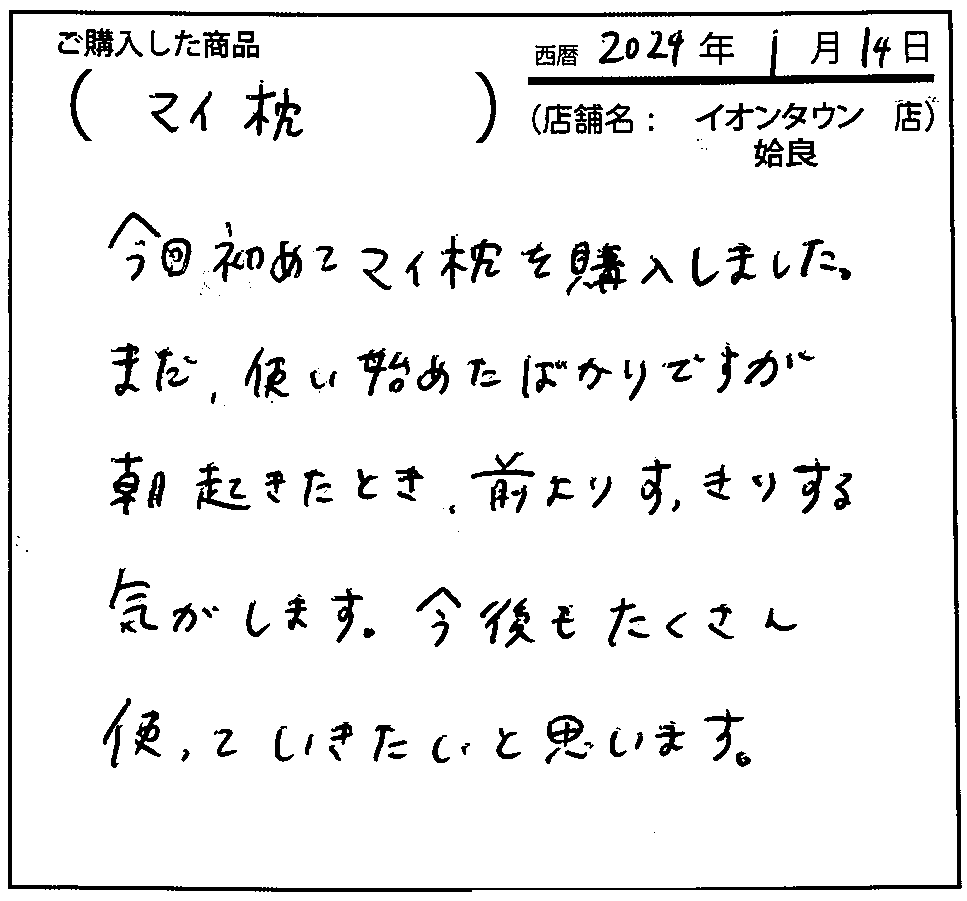 ご購入した商品
(マイ枕)
西暦 2024年 1月14日
(店舗名: イオンタウン 店)
姶良
今回初めてマイ枕を購入しました。
まだ、使い始めたばかりですが
朝起きたとき、前よりすっきりする
気がします。今後もたくさん
使っていきたいと思います。